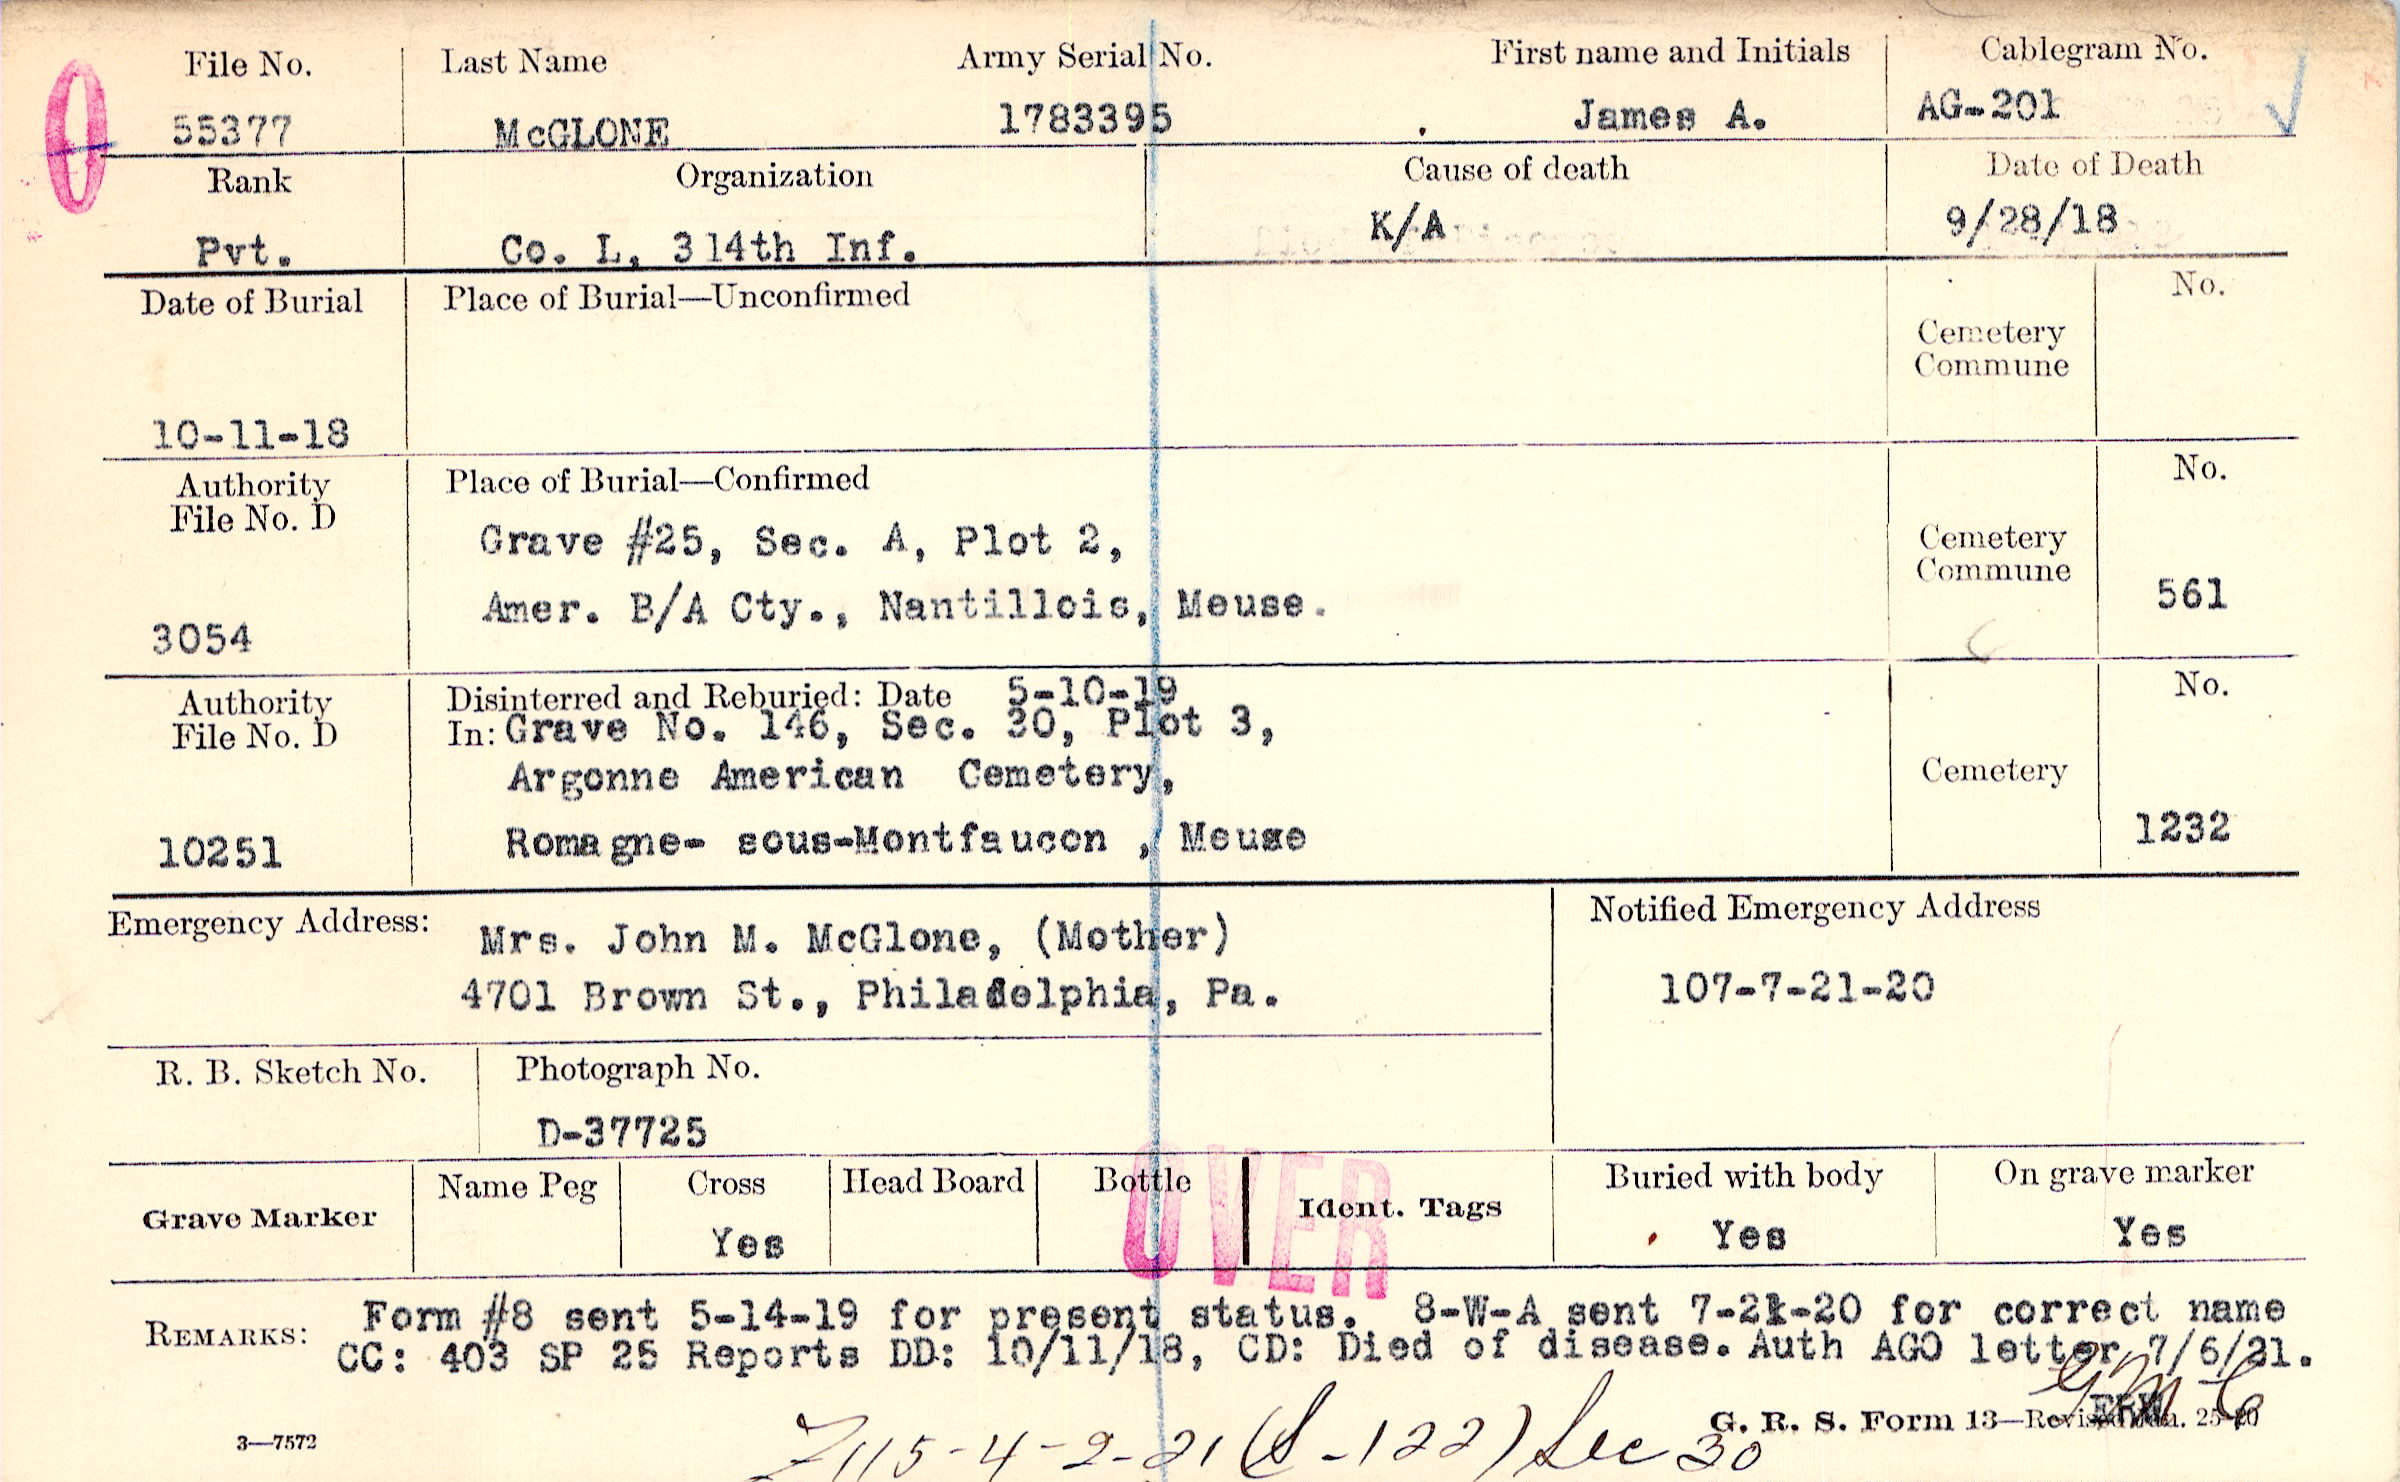 File No. Last Name Army Serial No. First name and Initials Cablegram No.
55377 McGLONE 1783395 James A. AG-201
Rank Organization Cause of death Date of Death
Pvt. Co. L, 314th Inf. K/A 9/28/18
Date of Burial Place of Burial—Unconfirmed No.
Cemetery
Commune
10-11-18
Authority Place of Burial—Confirmed No.
File No. D
Grave #25, Sec. A, Plot 2, Cemetery
Commune
Amer. B/A Cty., Nantillois, Meuse. 561
3054
Authority Disinterred and Reburied: Date 5-10-19 No.
File No. D In: Grave No. 146, Sec. 30, Plot 3,
Argonne American Cemetery, Cemetery
10251 Romagne- sous-Montfaucon , Meuse 1232
Emergency Address: Notified Emergency Address
Mrs. John M. McGlone, (Mother)
4701 Brown St., Philadelphia, Pa. 107-7-21-20
R. B. Sketch No. Photograph No.
D-37725
Grave Marker Name Peg Cross Head Board Bottle Ident. Tags Buried with body On grave marker
Yes Yes Yes
OVER
REMARKS: Form #8 sent 5-14-19 for present status. 8-W-A sent 7-21-20 for correct name
CC: 403 SP 25 Reports DD: 10/11/18, CD: Died of disease. Auth AGO letter 7/6/21.
G. R. S. Form 13—Revised Jan. 25-20
3—7572
7115-4-2-21 (S-122) Sec 30